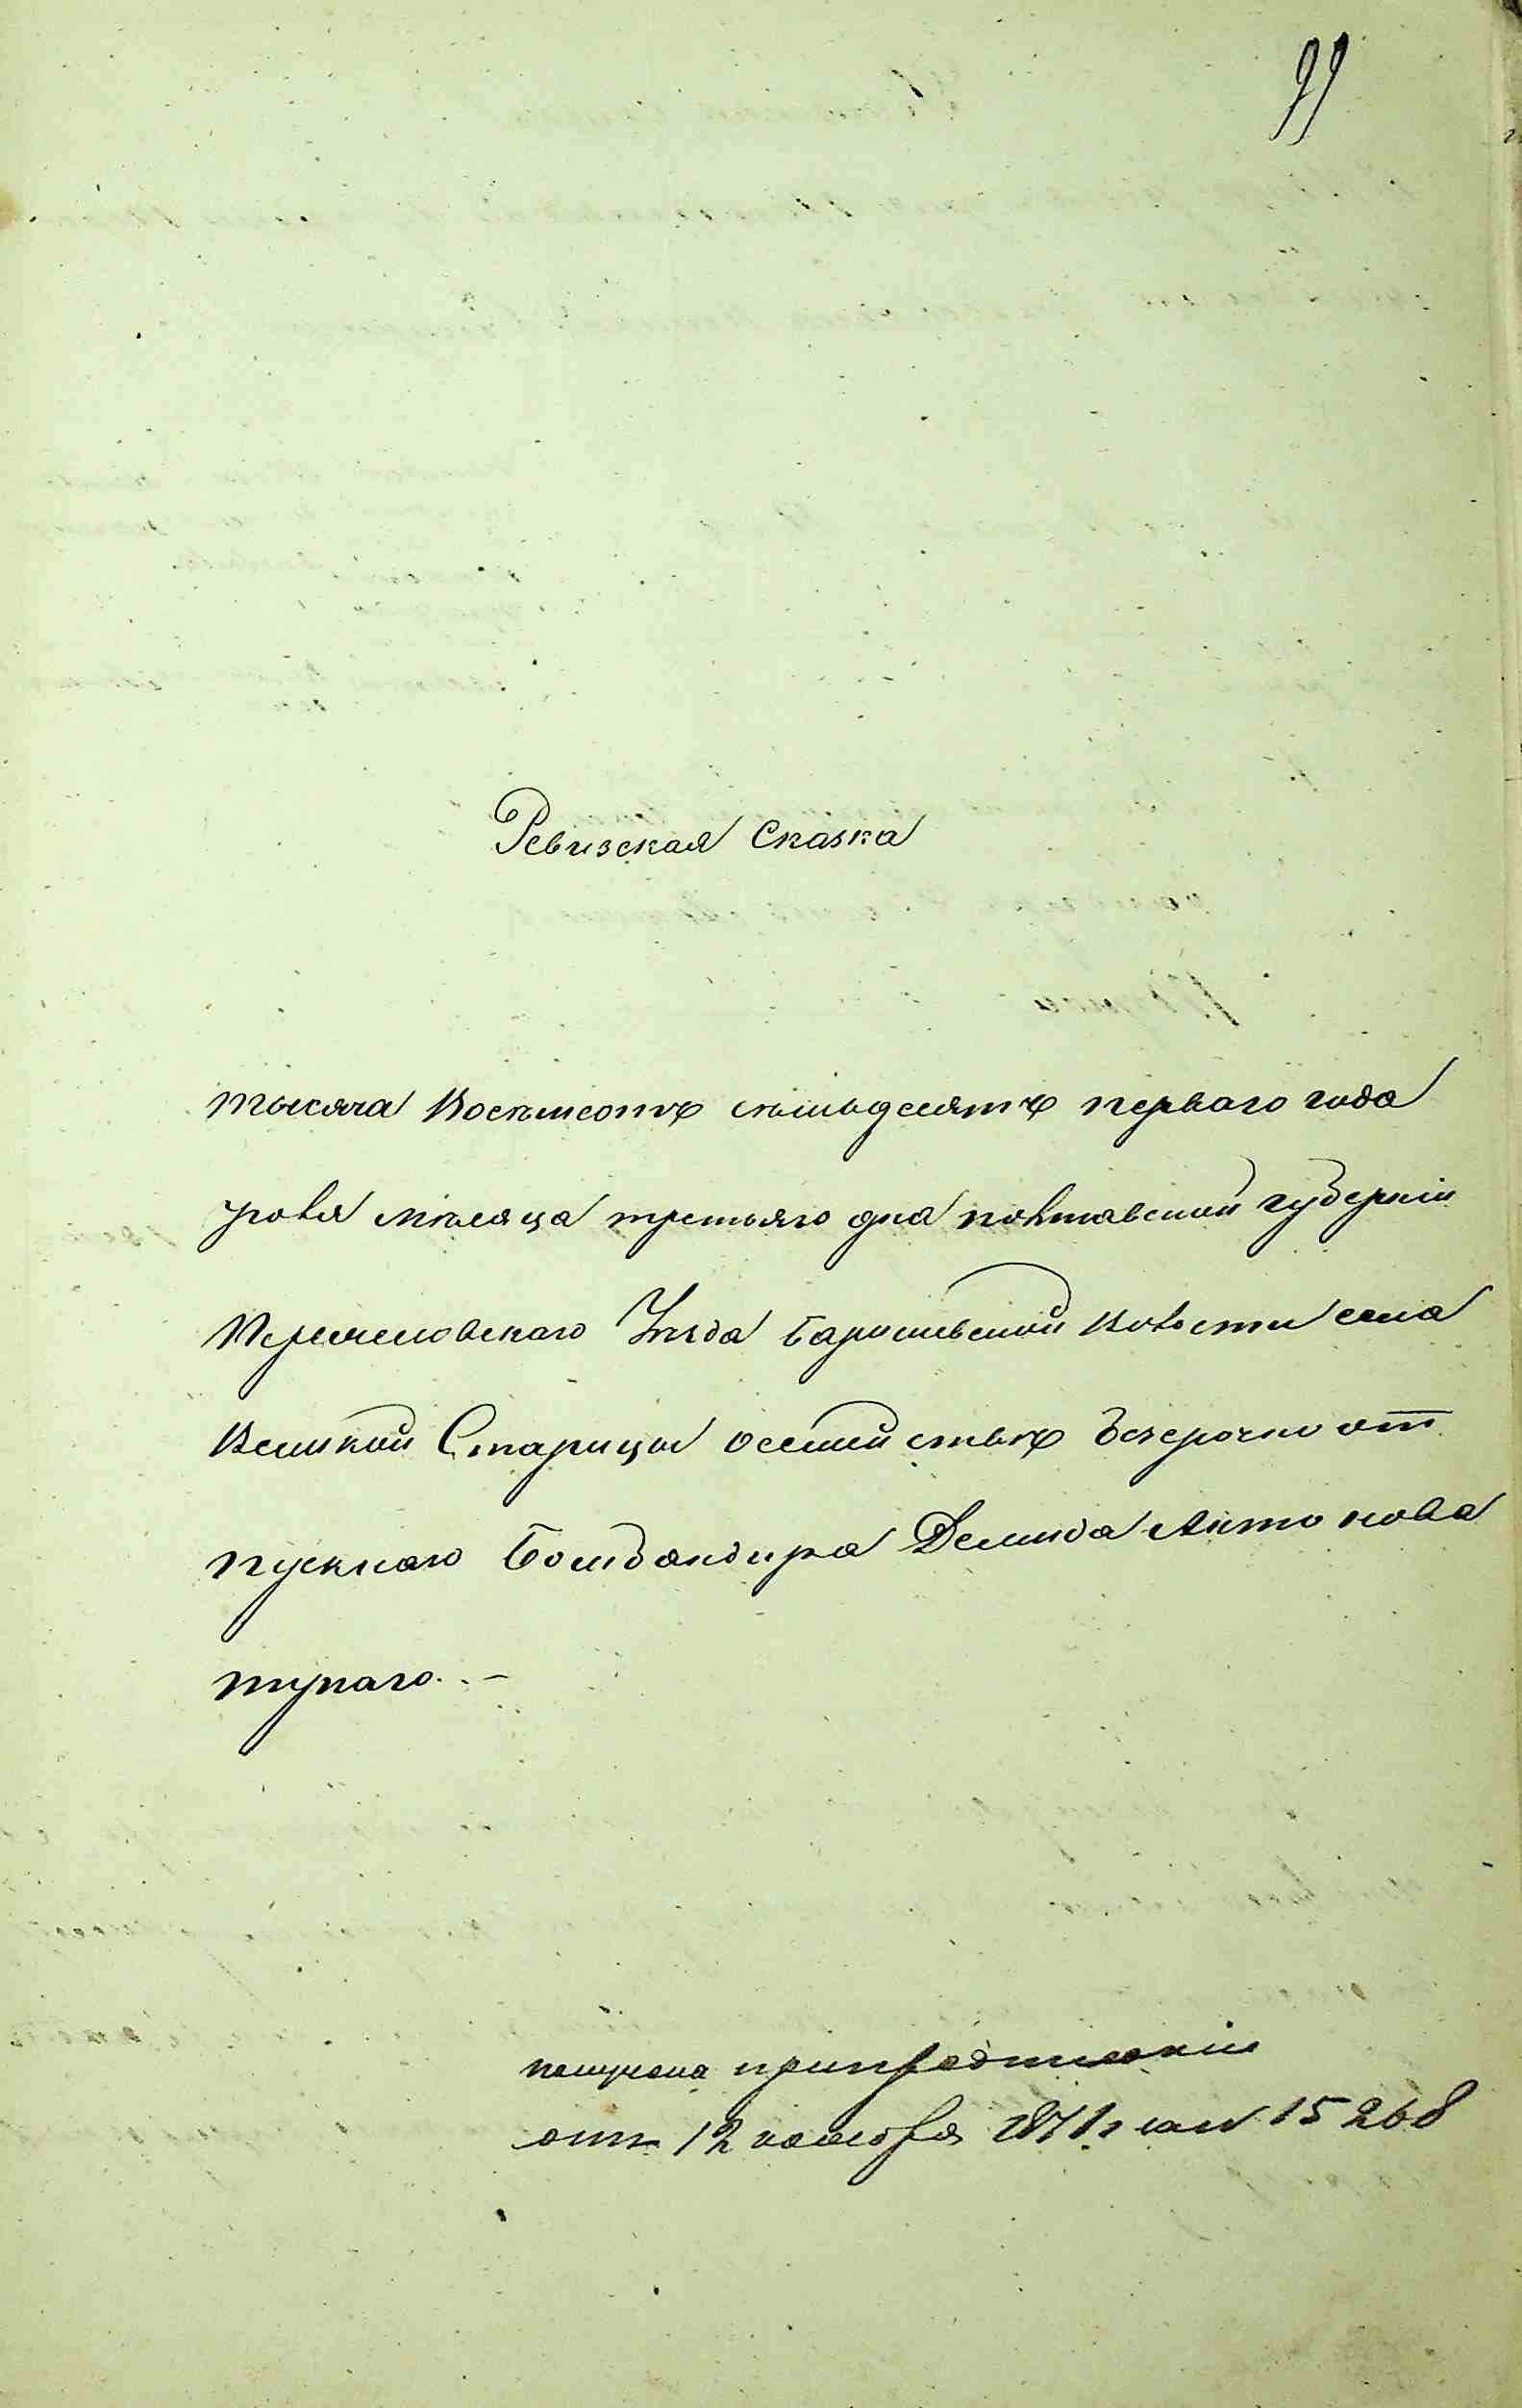 99
Ревизская Сказка
тысяча Восемьсотъ семьдесятъ перваго года
Уюля месяца третьяго дня полтавской губерніи
Переясловскаго Уезда Барышевской Волости села
Великой Старицы осемействѣ безсрочно от
пускнаго Бомбандира Демида Антонова
тупаго.-
получена
отъ 12 ноября 1871 г за № 15268